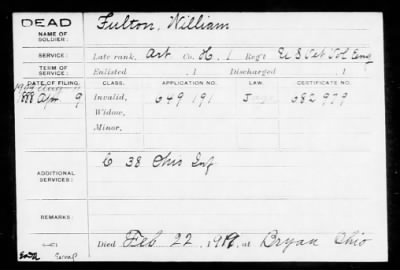 DEAD
NAME OF SOLDIER:
Fulton, William
SERVICE:
Late rank, Art Co. H. 1 Reg't U S Vet Vol Eng
TERM OF SERVICE:
Enlisted , 1 Discharged , 1
DATE OF FILING. CLASS. APPLICATION NO. LAW. CERTIFICATE NO.
888 Apr 9 Invalid, 649 191 682 979
Widow,
Minor,
ADDITIONAL SERVICES:
C 38 Ohio Inf
REMARKS:
Died Feb. 22, 19 at Bryan Ohio